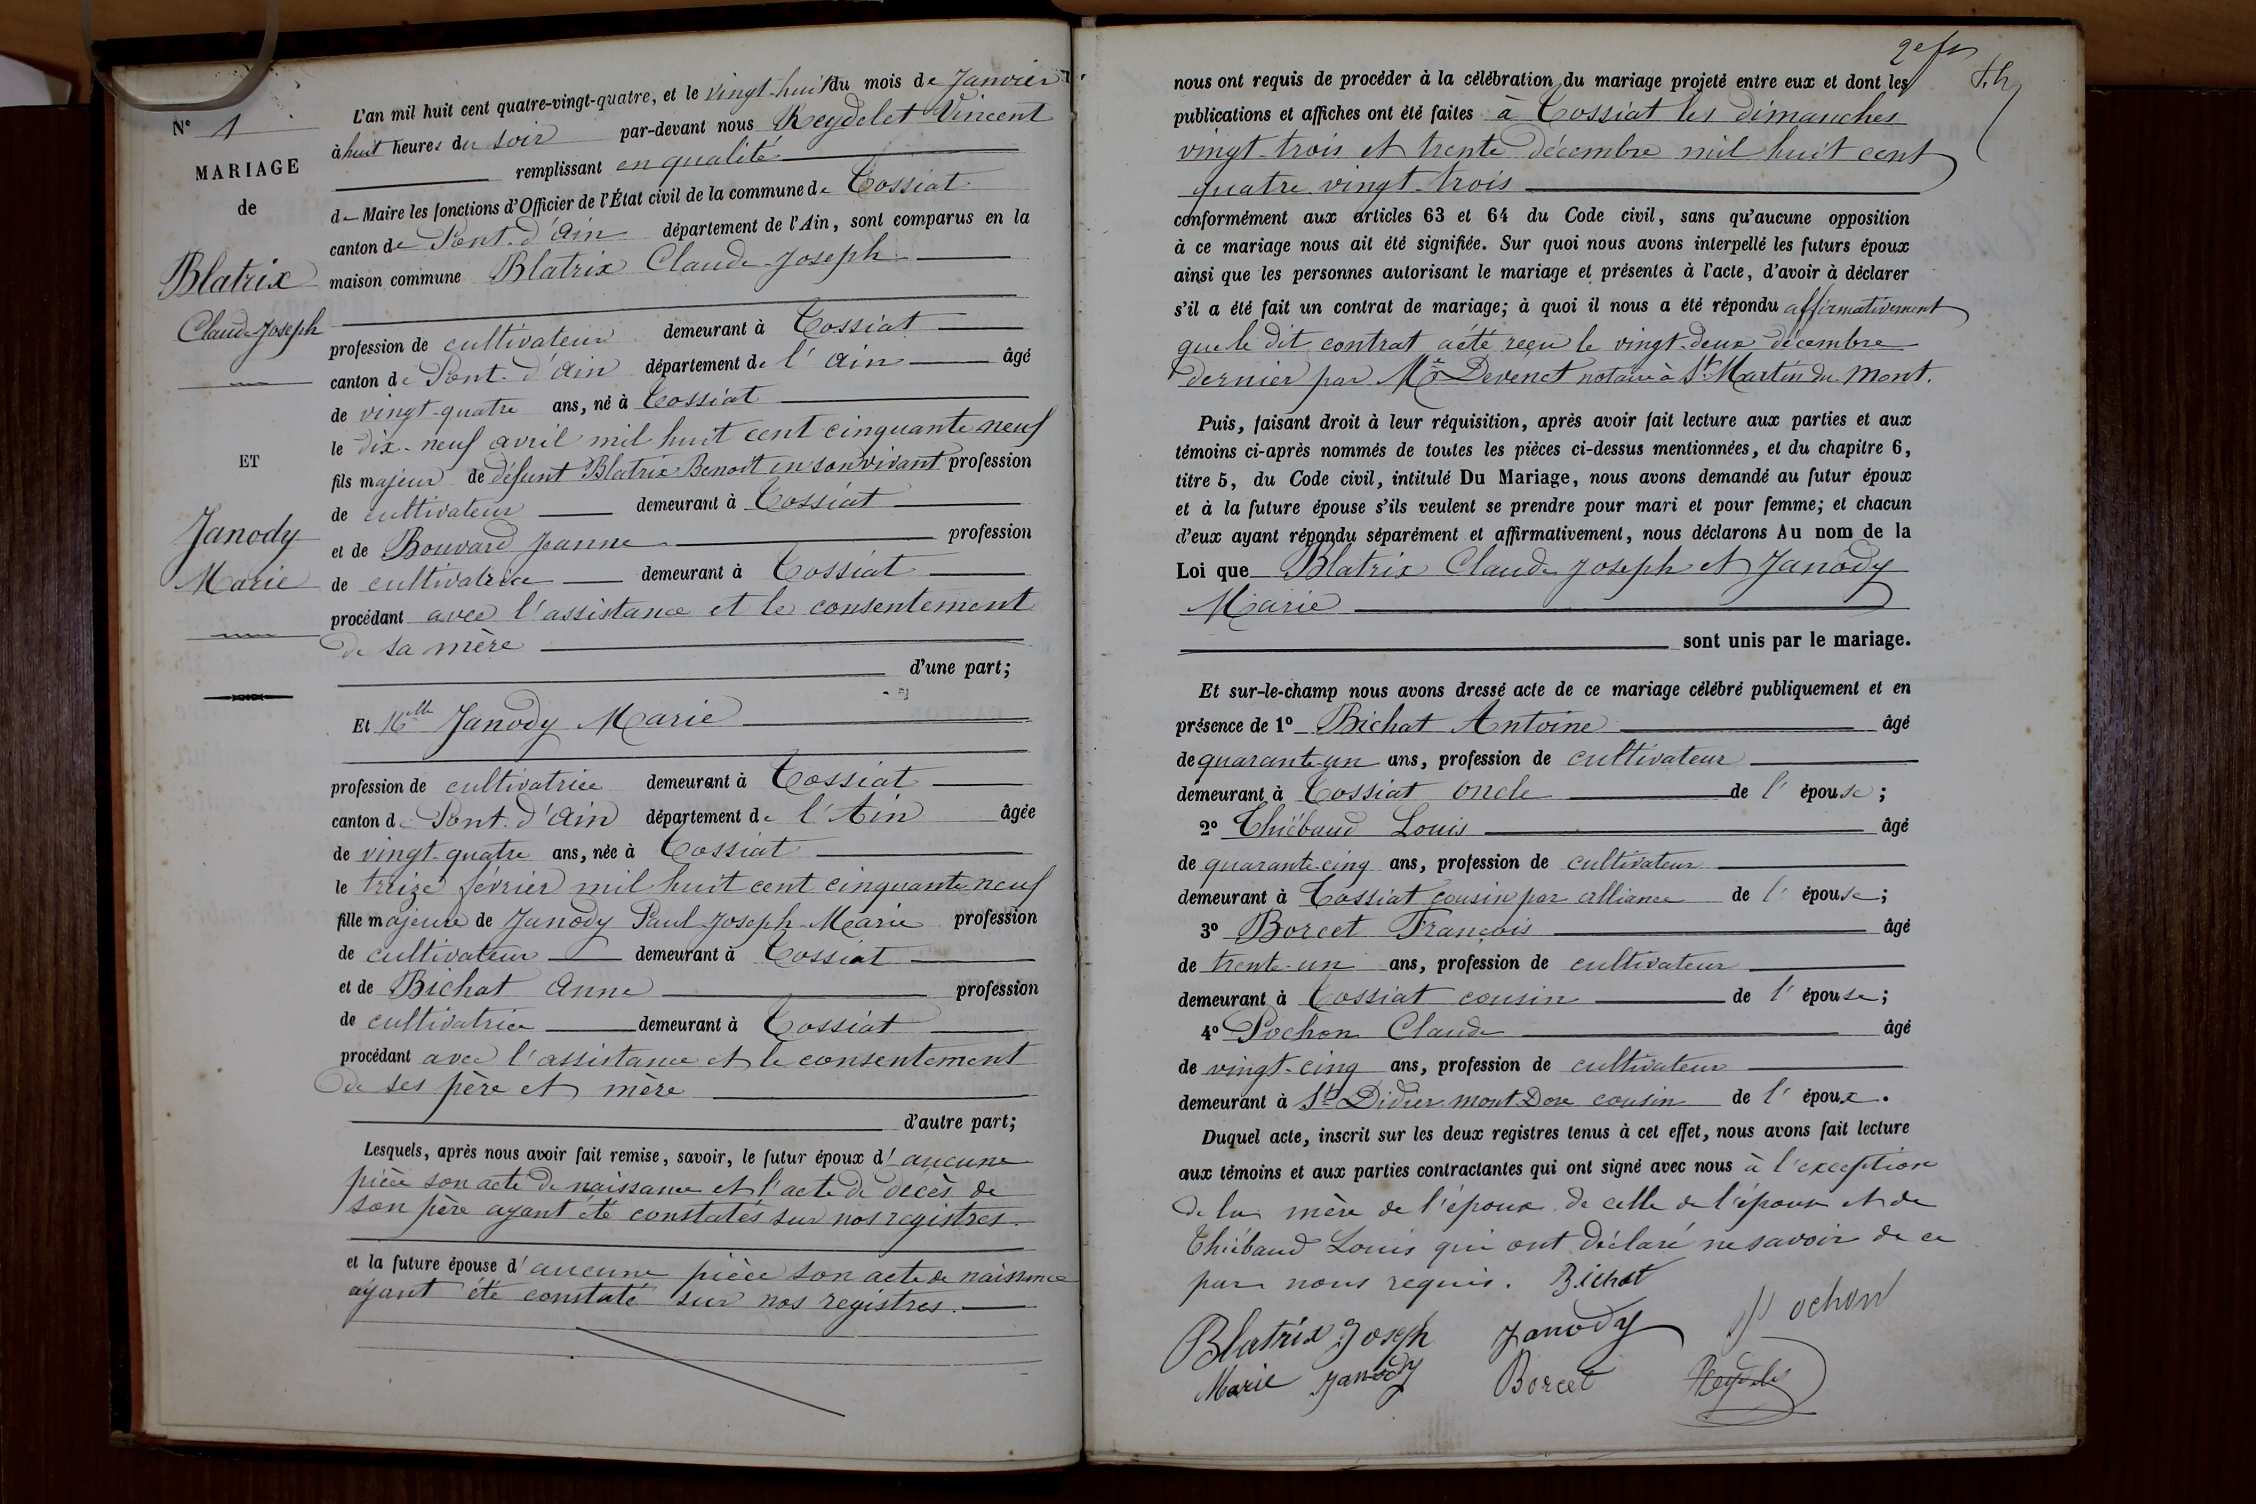 N° 1
MARIAGE
de
Blatrix
Claude Joseph
ET
Janody
Marie
L'an mil huit cent quatre-vingt-quatre, et le vingt-huit du mois de Janvier
à huit heures du soir par-devant nous Reydelet Vincent
remplissant en qualité
de Maire les fonctions d'Officier de l'État civil de la commune de Tossiat
canton de Pont-d'Ain département de l'Ain, sont comparus en la
maison commune Blatrix Claude Joseph
profession de cultivateur demeurant à Tossiat
canton de Pont-d'Ain département de l'Ain âgé
de vingt-quatre ans, né à Tossiat
le dix-neuf avril mil huit cent cinquante neuf
fils majeur de défunt Blatrix Benoit en son vivant profession
de cultivateur demeurant à Tossiat
et de Bouvard Jeanne profession
de cultivatrice demeurant à Tossiat
procédant avec l'assistance et le consentement
de sa mère
d'une part;
Et Melle Janody Marie
profession de cultivatrice demeurant à Tossiat
canton de Pont-d'Ain département de l'Ain âgée
de vingt-quatre ans, née à Tossiat
le treize février mil huit cent cinquante neuf
fille majeure de Janody Paul Joseph Marie profession
de cultivateur demeurant à Tossiat
et de Bichat Anne profession
de cultivatrice demeurant à Tossiat
procédant avec l'assistance et le consentement
de ses père et mère
d'autre part;
Lesquels, après nous avoir fait remise, savoir, le futur époux d'aucune
pièce son acte de naissance et l'acte de décès de
son père ayant été constatés sur nos registres.
et la future épouse d'aucune pièce son acte de naissance
ayant été constaté sur nos registres.
nous ont requis de procéder à la célébration du mariage projeté entre eux et dont les
publications et affiches ont été faites à Tossiat les dimanches
vingt-trois et trente décembre mil huit cent
quatre vingt-trois
conformément aux articles 63 et 64 du Code civil, sans qu'aucune opposition
à ce mariage nous ait été signifiée. Sur quoi nous avons interpellé les futurs époux
ainsi que les personnes autorisant le mariage et présentes à l'acte, d'avoir à déclarer
s'il a été fait un contrat de mariage; à quoi il nous a été répondu affirmativement
que le dit contrat a été reçu le vingt-deux décembre
dernier par Me Devenet notaire à St Martin du Mont.
Puis, faisant droit à leur réquisition, après avoir fait lecture aux parties et aux
témoins ci-après nommés de toutes les pièces ci-dessus mentionnées, et du chapitre 6,
titre 5, du Code civil, intitulé Du Mariage, nous avons demandé au futur époux
et à la future épouse s'ils veulent se prendre pour mari et pour femme; et chacun
d'eux ayant répondu séparément et affirmativement, nous déclarons Au nom de la
Loi que Blatrix Claude Joseph et Janody
Marie
sont unis par le mariage.
Et sur-le-champ nous avons dressé acte de ce mariage célébré publiquement et en
présence de 1° Bichat Antoine âgé
de quarante-un ans, profession de cultivateur
demeurant à Tossiat oncle de l'épouse;
2° Thiébaud Louis âgé
de quarante-cinq ans, profession de cultivateur
demeurant à Tossiat cousin par alliance de l'épouse;
3° Borcet François âgé
de trente-un ans, profession de cultivateur
demeurant à Tossiat cousin de l'épouse;
4° Pochon Claude âgé
de vingt-cinq ans, profession de cultivateur
demeurant à St Didier mont Dore cousin de l'époux.
Duquel acte, inscrit sur les deux registres tenus à cet effet, nous avons fait lecture
aux témoins et aux parties contractantes qui ont signé avec nous à l'exception
de la mère de l'époux de celle de l'épouse et de
Thiébaud Louis qui ont déclaré ne savoir de ce
par nous requis. Bichat
Blatrix Joseph Janody Pochon
Marie Janody Borcet Reydelet